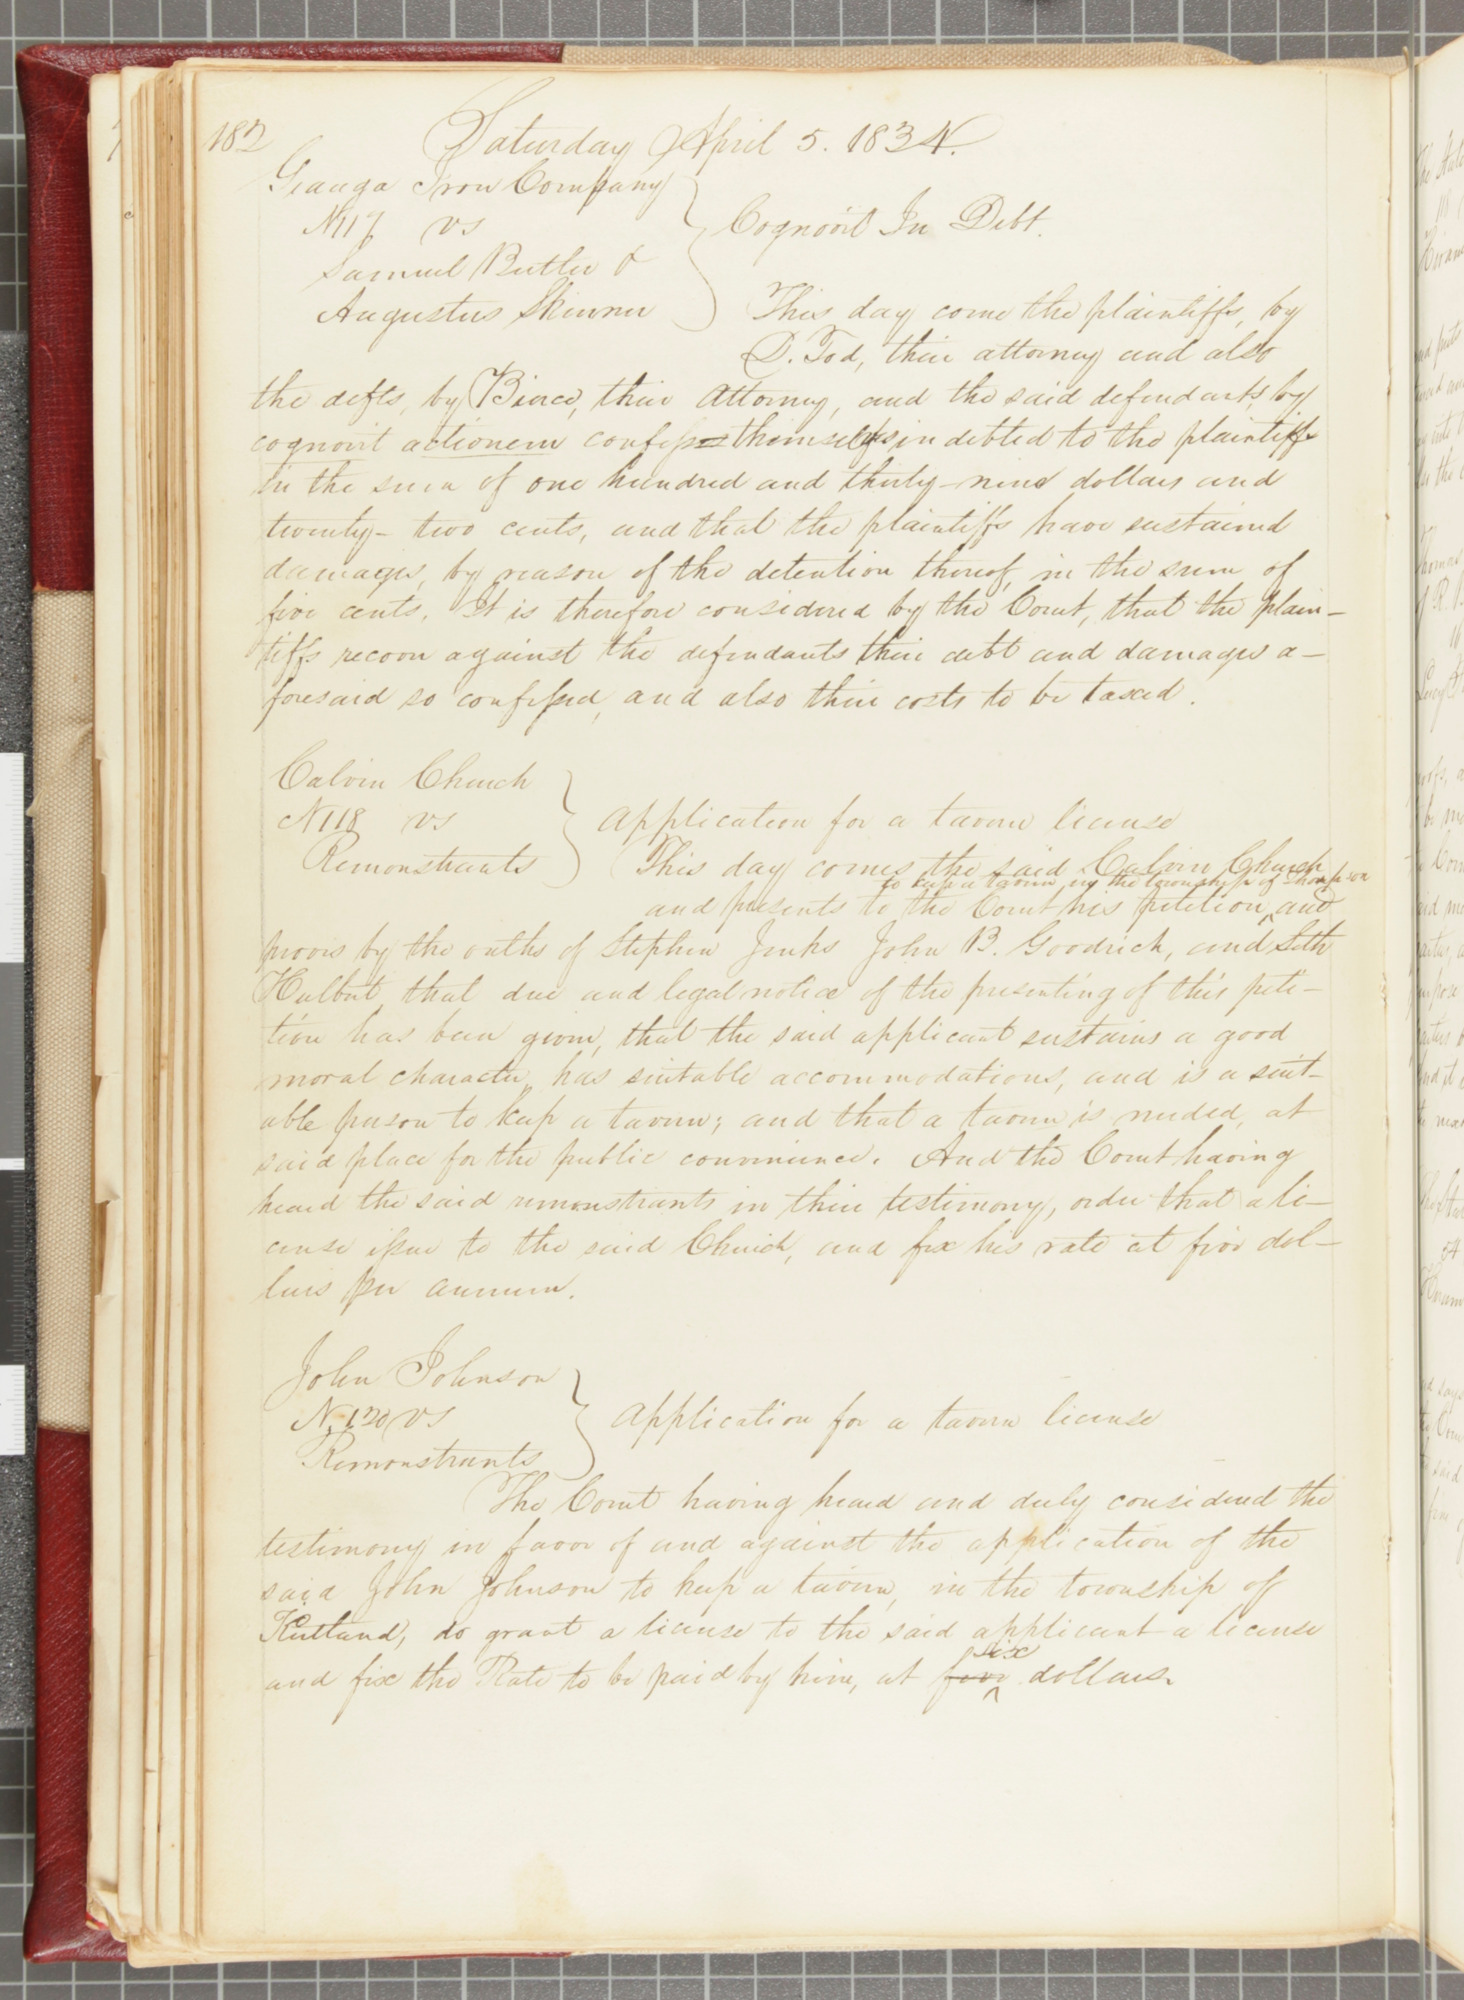 182
Saturday April 5. 1834.
Geauga Iron Company
N 117 vs
Samuel Butler &
Augustus Skinner
Cognovit In Debt.
This day come the plaintiffs, by
D. Tod, their attorney and also
the defts, by Bierce, their attorney, and the said defendants, by
cognovit actionem confess themselves indebted to the plaintiffs
in the sum of one hundred and thirty-nine dollars and
twenty-two cents, and that the plaintiffs have sustained
damages, by reason of the detention thereof, in the sum of
five cents. It is therefore considered by the Court, that the plain-
tiffs recover against the defendants their debt and damages a-
foresaid so confessed, and also their costs to be taxed.
Calvin Church
N 118 vs
Remonstrants
Application for a tavern license
This day comes the said Calvin Church
to keep a tavern in the township of Thompson
and presents to the Court his petition, and
proves by the oaths of Stephen Jenks John B. Goodrich, and Seth
Hulbut, that due and legal notice of the presenting of this peti-
tion has been given, that the said applicant sustains a good
moral character, has suitable accommodations, and is a suit-
able person to keep a tavern; and that a tavern is needed, at
said place for the public convenience. And the Court having
heard the said remonstrants in their testimony, order that a li-
cense issue to the said Church, and fix his rate at five dol-
lars per annum.
John Johnson
N. 120 vs
Remonstrants
Application for a tavern license
The Court having heard and duly considered the
testimony in favor of and against the application of the
said John Johnson to keep a tavern, in the township of
Kirtland, do grant a license to the said applicant a license
six
and fix the Rate to be paid by him, at five dollars.